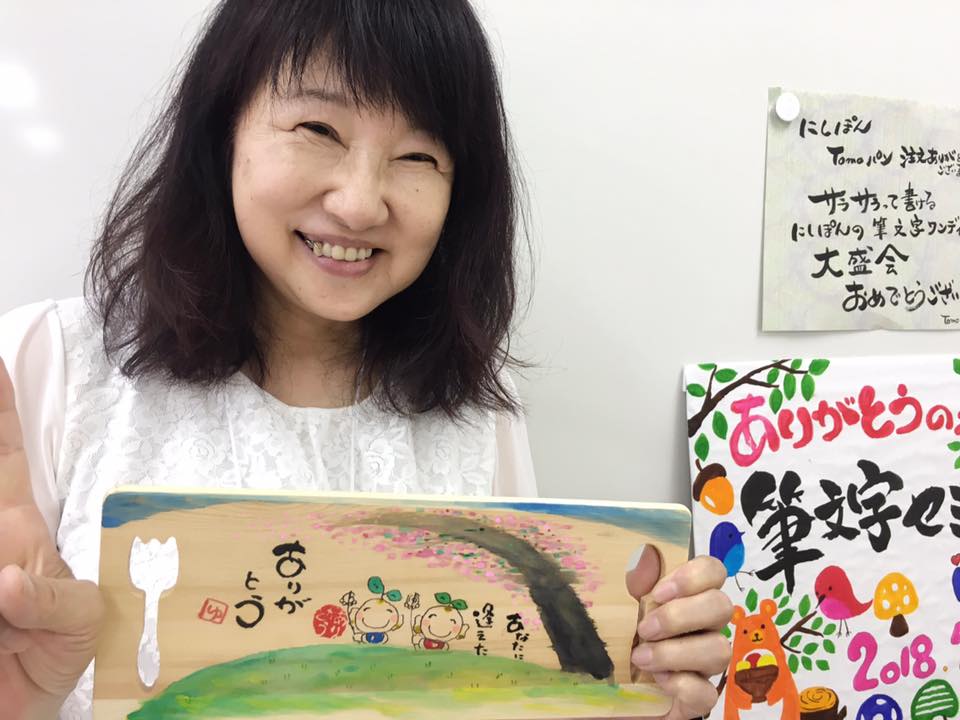 にしぽん
Tomoパン 注文ありがと
ござい
サラサラって書ける
にしぽんの 筆文字ワンデ
大盛会
おめでとうござい
Tomo
ありがとうの
筆文字セミ
2018
あなたに
逢えた
ありが
とう
ゆ